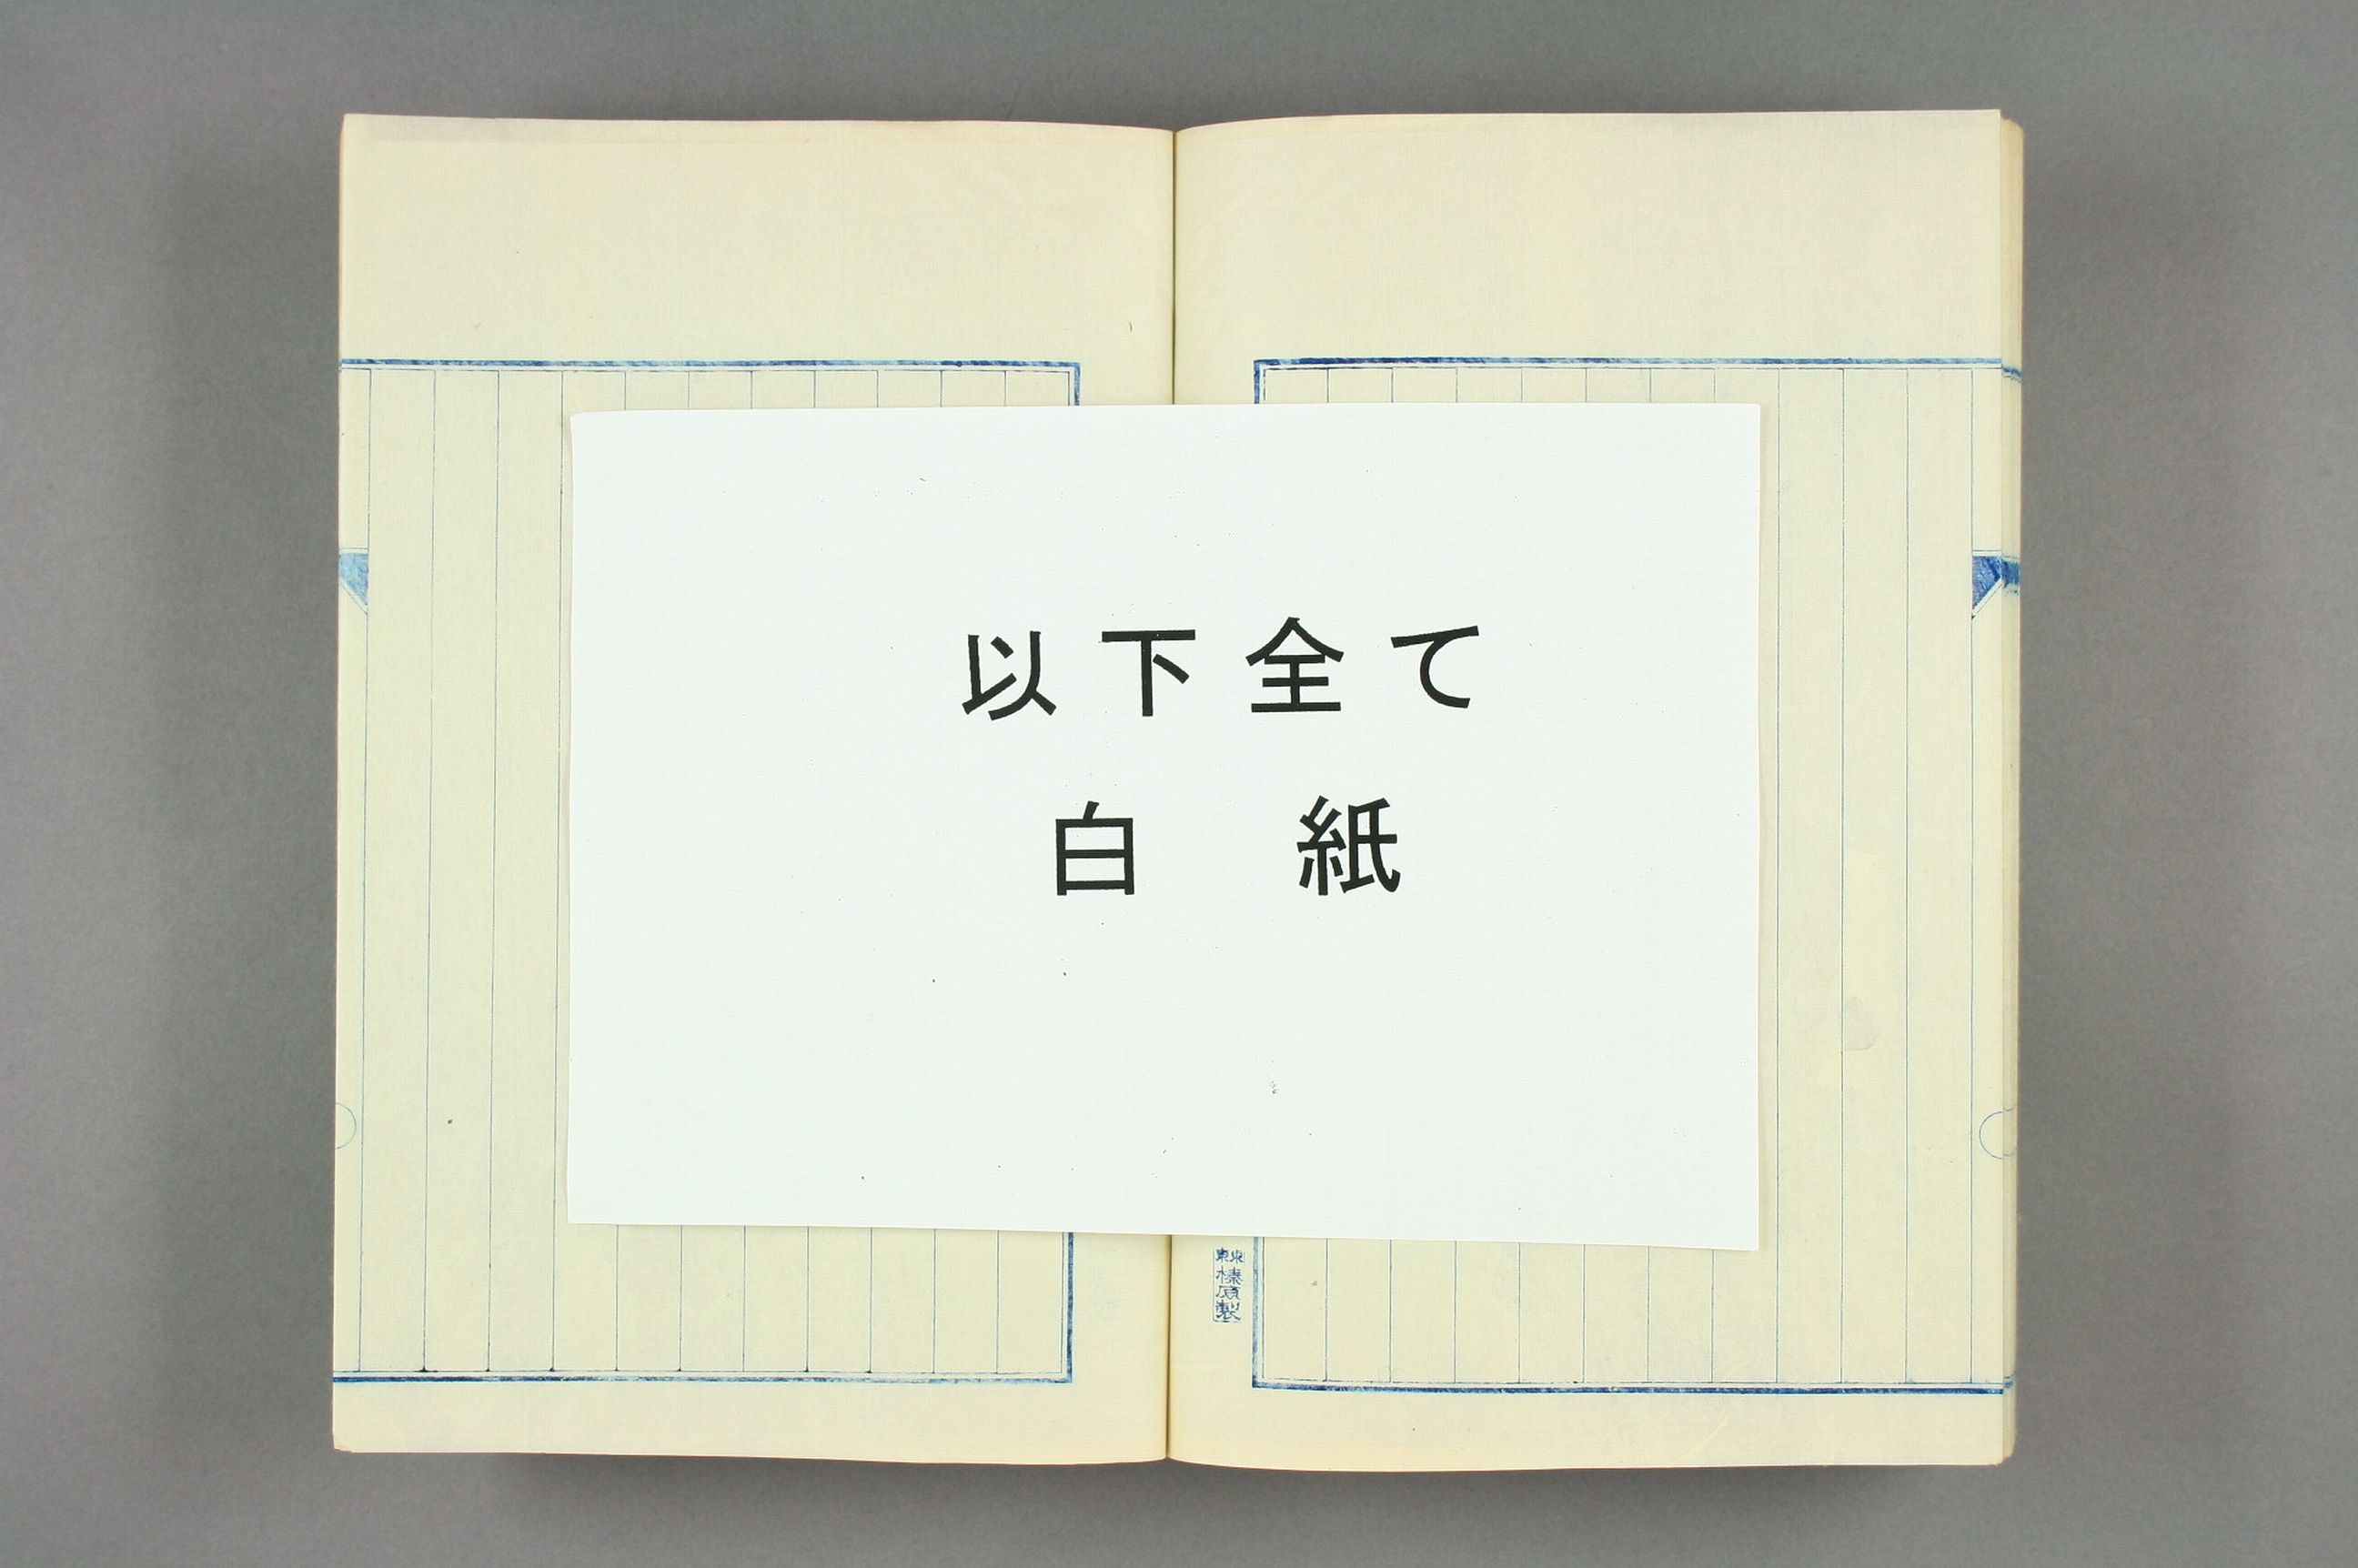 以下全て
白　紙
榛原製